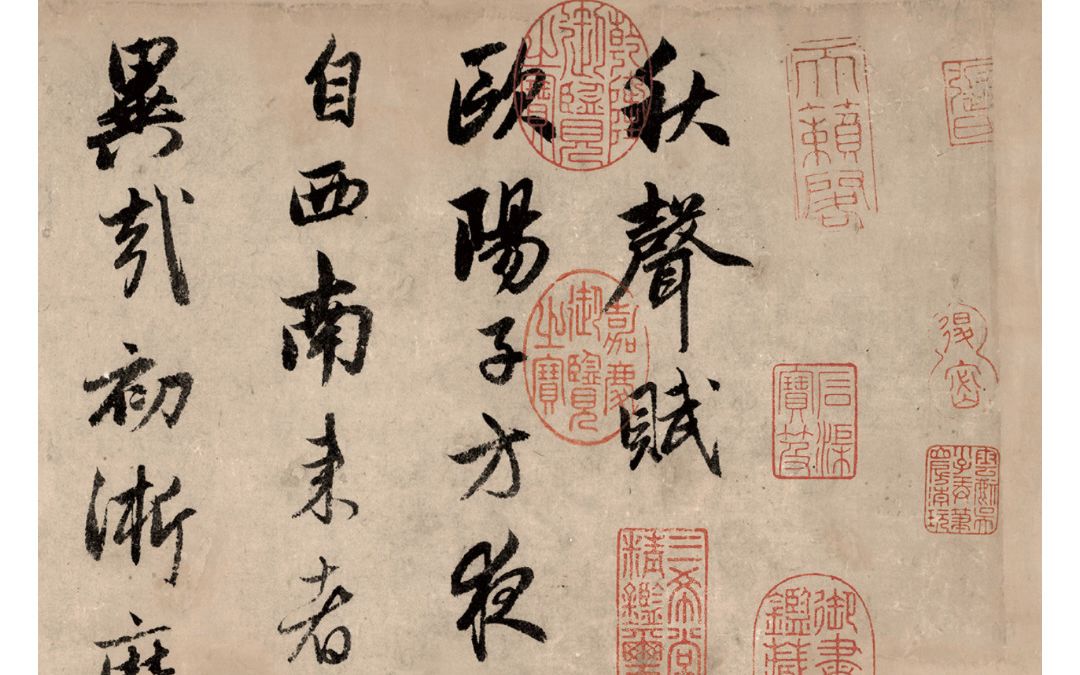 天籟閣
石渠
寶笈
御書
鑑藏
三希堂
精鑑璽
乾隆
御覽
之寶
嘉慶
御覽
之寶
秋聲賦
歐陽子方夜
自西南來者
異哉初淅